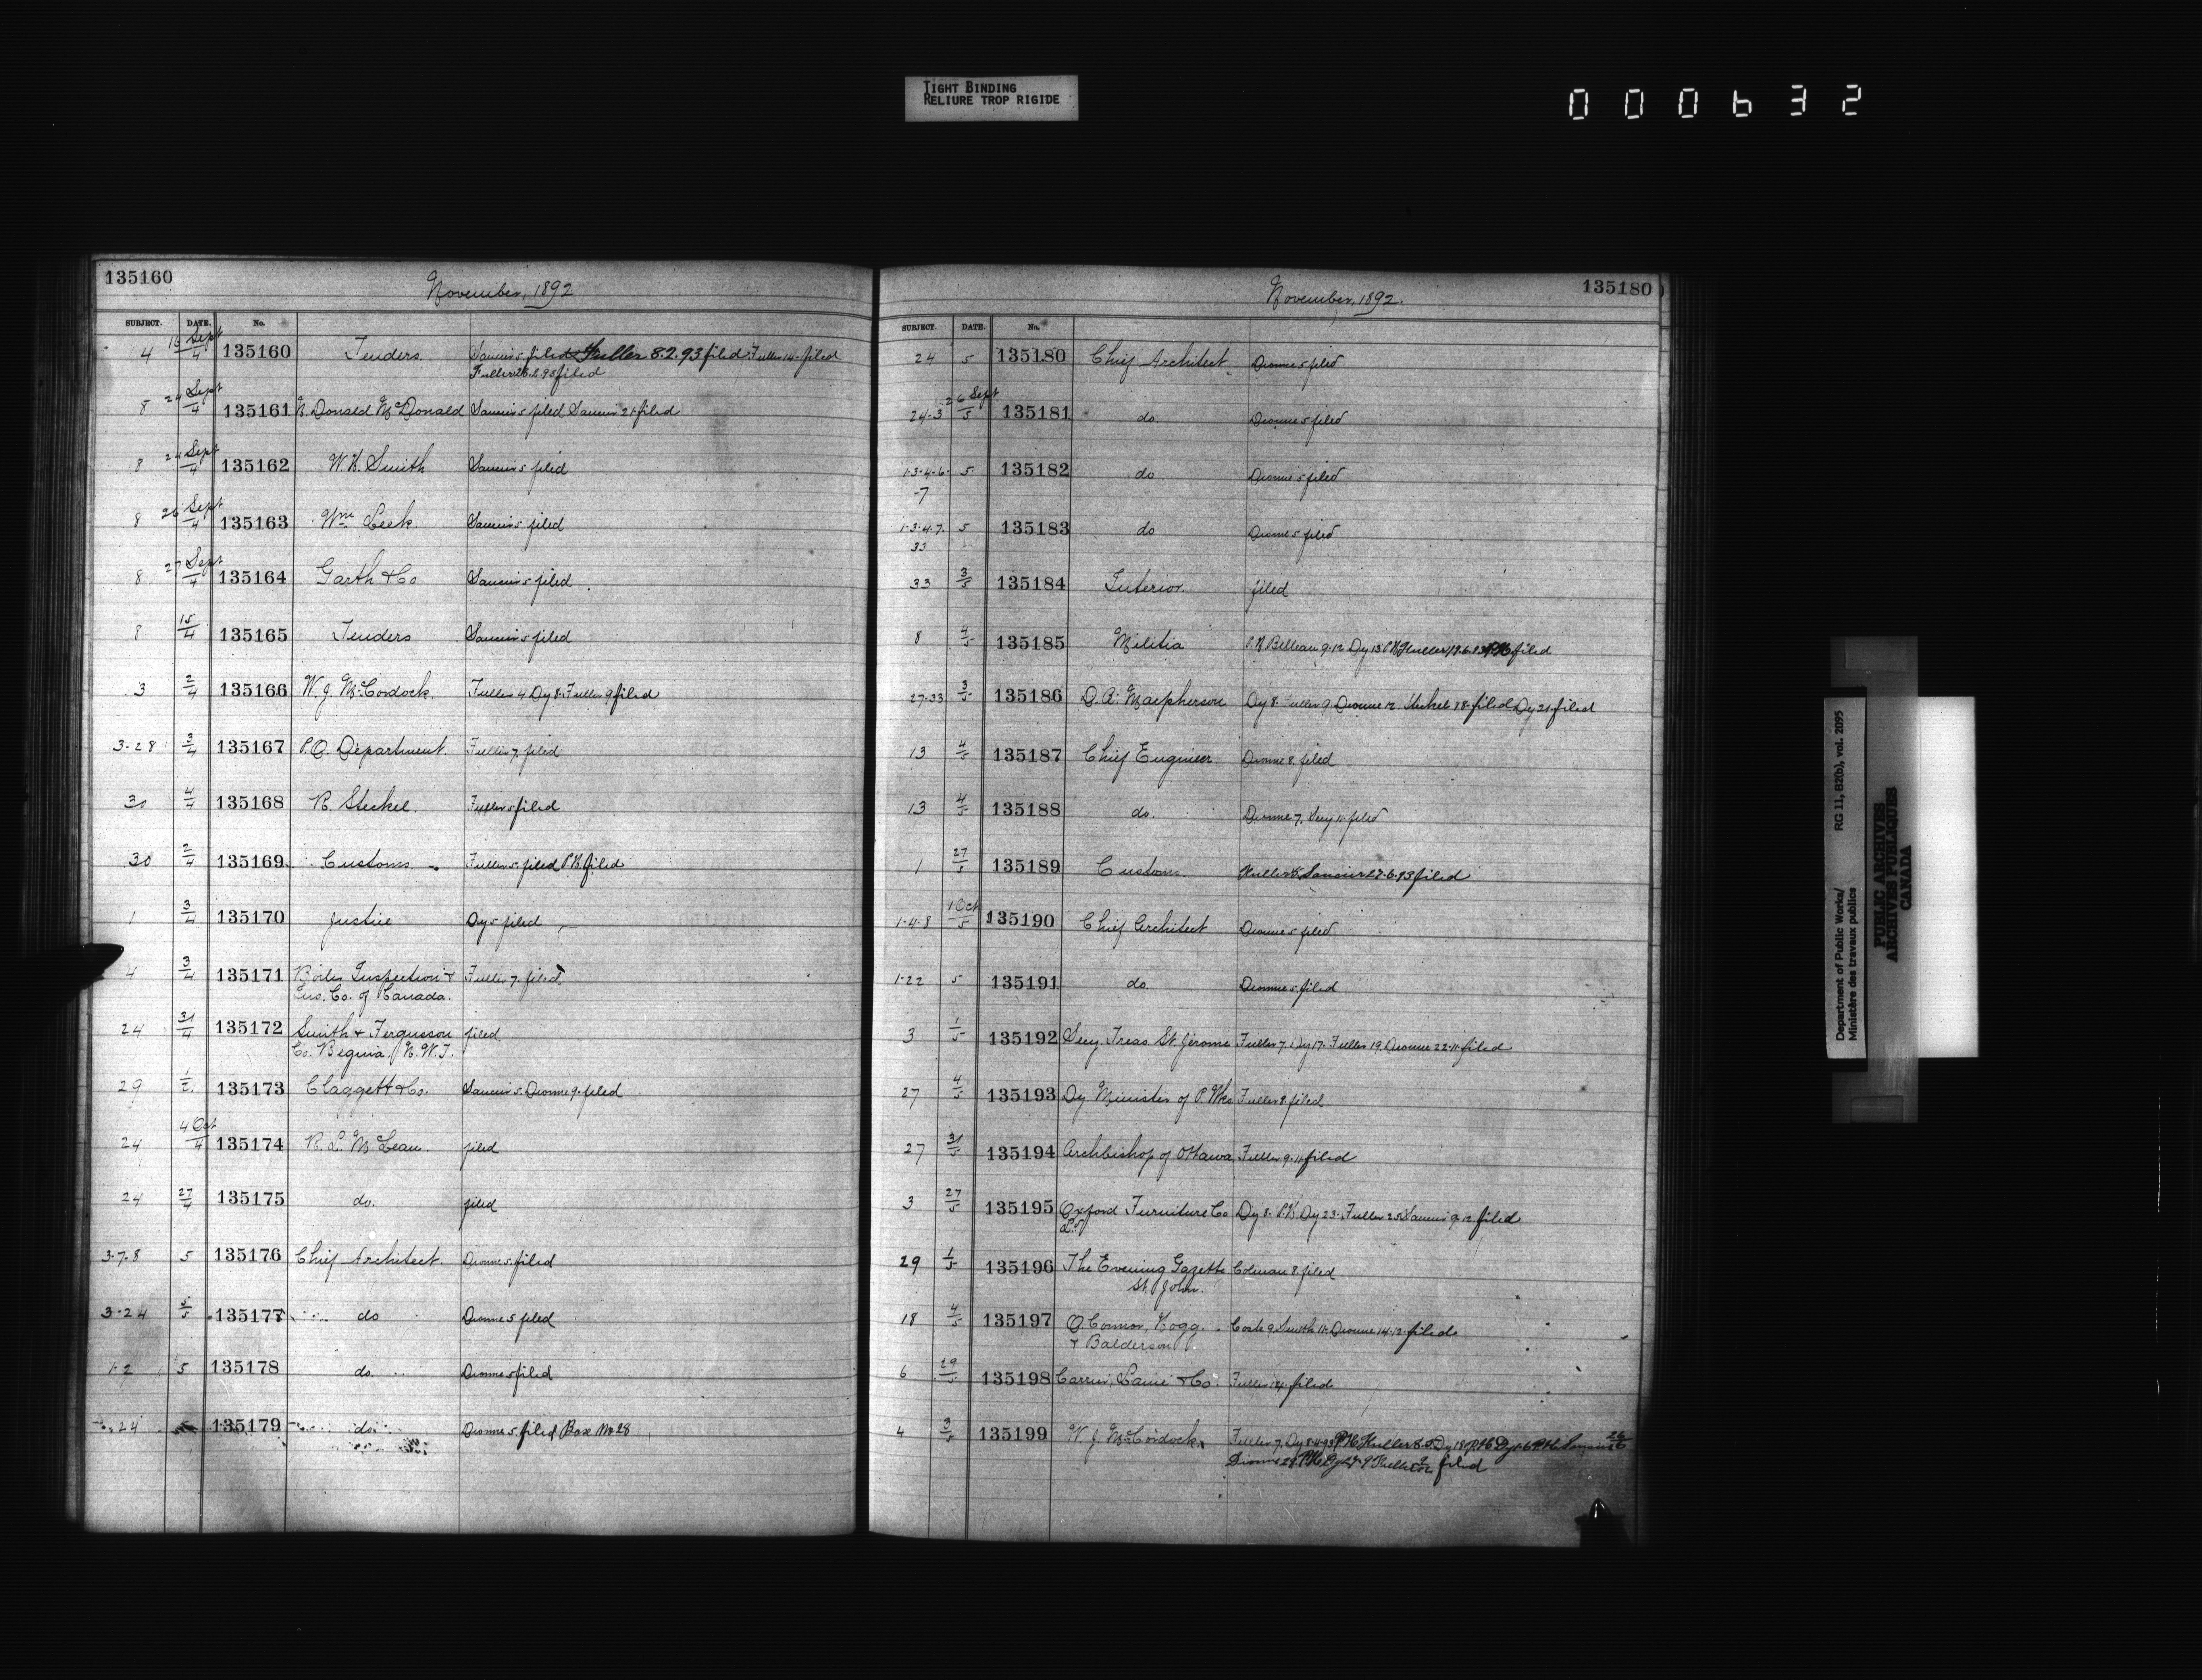 TIGHT BINDING
RELIURE TROP RIGIDE
000632
135160
November, 1892
SUBJECT. DATE. No.
4 16 Sept/4 135160 Tenders. Saucier 5. filed Fuller 8.2.93 filed Fuller 14 filed
Fuller 28.2.93 filed
8 24 Sept/4 135161 N. Donald McDonald Saucier 5 filed Saucier 21 filed
8 24 Sept/4 135162 W. H. Smith Saucier 5 filed
8 26 Sept/4 135163 Wm Leek Saucier 5 filed
8 27 Sept/4 135164 Garth & Co Saucier 5 filed
8 15/4 135165 Tenders Saucier 5 filed
3 2/4 135166 W. J. McCordock. Fuller 4 Dy 8. Fuller 9 filed
3-28 3/4 135167 P.O. Department Fuller 7. filed
30 4/4 135168 R. Steckel. Fuller 5 filed
30 2/4 135169 Customs. Fuller 5. filed P.H. filed
1 3/4 135170 Justice Dy 5 filed
4 3/4 135171 Boiler Inspection & Fuller 7. filed
Ins. Co. of Canada.
24 31/4 135172 Smith & Fergusson filed.
Co. Regina. N.W.T.
29 1/2 135173 Claggett & Co. Saucier 5. Dionne 9. filed
24 4 Oct/4 135174 R. L. McLean. filed
24 27/4 135175 do. filed
3-7-8 5 135176 Chief Architect. Dionne 5. filed
3-24 5/5 135177 do Dionne 5 filed
1-2 5 135178 do. Dionne 5 filed
24 135179 do. Dionne 5. filed Box No 28
135180
November, 1892.
SUBJECT. DATE. No.
24 5 135180 Chief Architect. Dionne 5 filed
24-3 26 Sept/5 135181 do. Dionne 5 filed
1-3-4-6- 5 135182 do Dionne 5 filed
-7
1-3-4-7. 5 135183 do Dionne 5 filed
33
33 3/5 135184 Interior. filed
8 4/5 135185 Militia P.H. Belleau 9.12 Dy 13 P.H. Fuller 19.6.93 P.H. filed
27-33 3/5 135186 D. A. Macpherson Dy 8. Fuller 9. Dionne 12. Steckel 18. filed Dy 21. filed
13 4/5 135187 Chief Engineer Dionne 8. filed
13 4/5 135188 do. Dionne 7. Secy 11. filed
1 27/5 135189 Customs. Fuller Saucier 27.6.93 filed
1-4-8 1 Oct/5 135190 Chief Architect Dionne 5 filed
1-22 5 135191 do. Dionne 5. filed
3 1/5 135192 Secy. Treas. St. Jerome Fuller 7. Dy 17. Fuller 19. Dionne 22.11. filed
27 4/5 135193 Dy Minister of P. Wks Fuller 8. filed
27 31/5 135194 Archbishop of Ottawa. Fuller 9.11. filed
3 27/5 135195 Oxford Furniture Co Dy 8. P.H. Dy 23. Fuller 25 Saucier 9.12. filed
Ld
29 1/5 135196 The Evening Gazette Colman 8. filed
St. John.
18 4/5 135197 O'Connor, Hogg. Coste 9 Smith 11. Dionne 14.12. filed
& Balderson
6 29/5 135198 Carrier, Lainé & Co. Fuller 14. filed
4 3/5 135199 W. J. McCordock. Fuller 7. Dy 8.4.93 P.H. Fuller 8.5. Dy 18 P.H. Saucier 26/6
Dionne 28 P.H. filed
Department of Public Works/ RG 11, B2(b), vol. 2095
Ministère des travaux publics
PUBLIC ARCHIVES
ARCHIVES PUBLIQUES
CANADA